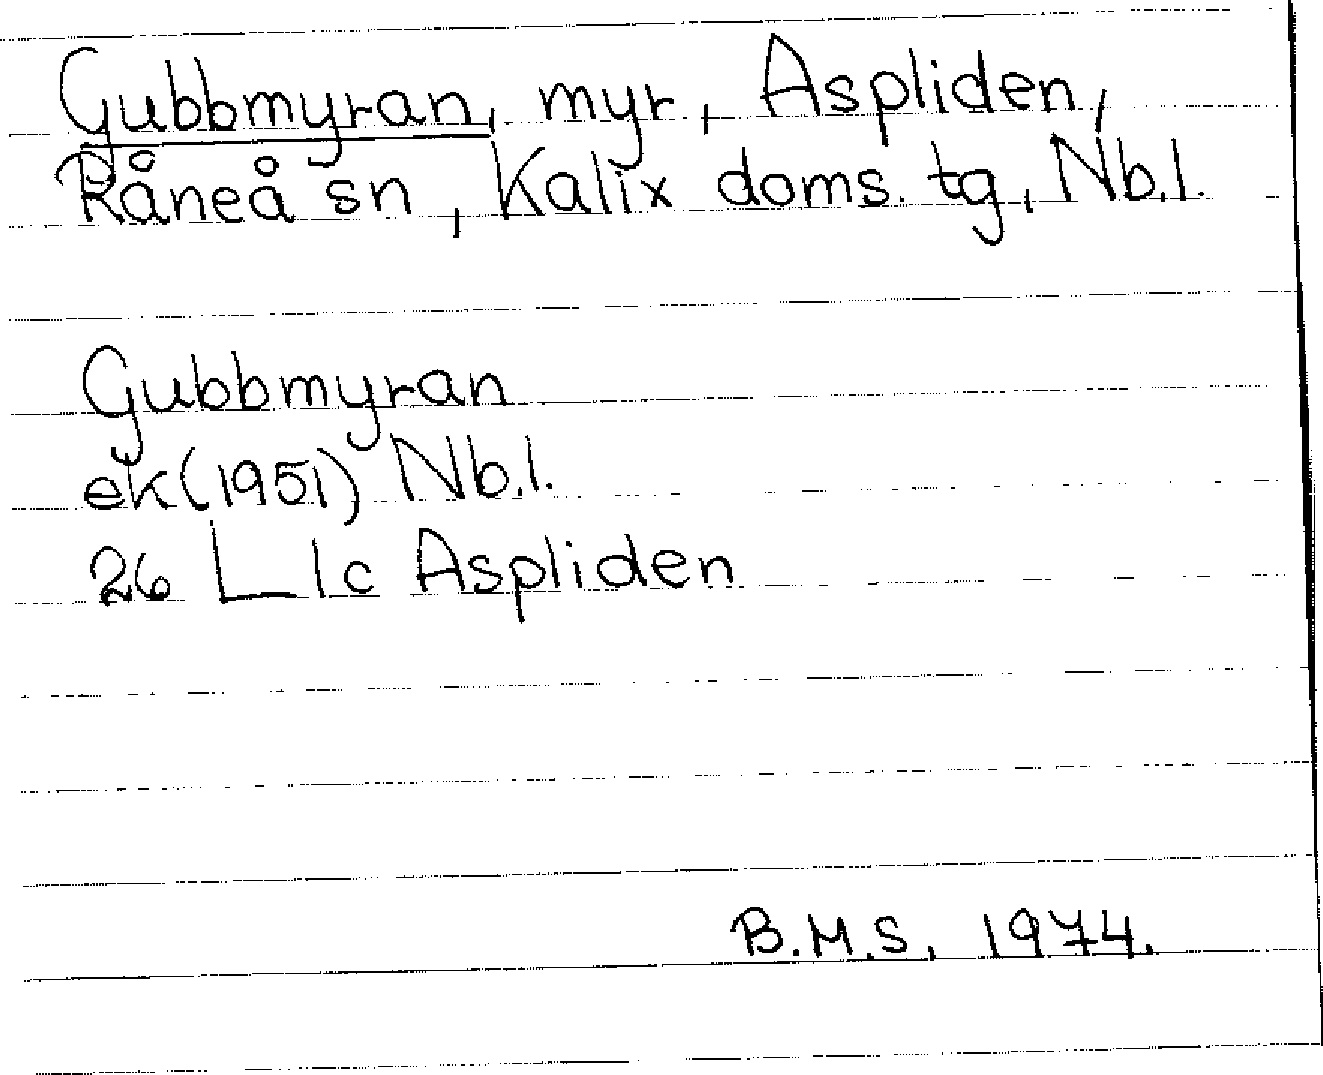 Gubbmyran, myr, Aspliden,
Råneå sn, Kalix doms. tg, Nb.l.
Gubbmyran
ek (1951) Nb.l.
26 L 1c Aspliden
B.M.S. 1974.